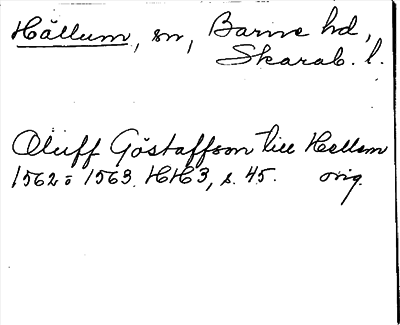 Hällum, sn, Barne hd,
Skarab. l.
Oluff Göstaffson till Hellem
1562 o 1563. HH3, s. 45. orig.